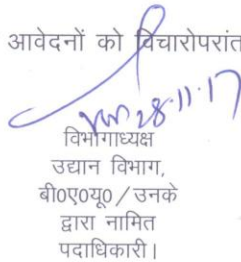 आवेदनों को विचारोपरांत
28.11.17
विभागाध्यक्ष
उद्यान विभाग,
बी0ए0यू0/उनके
द्वारा नामित
पदाधिकारी।